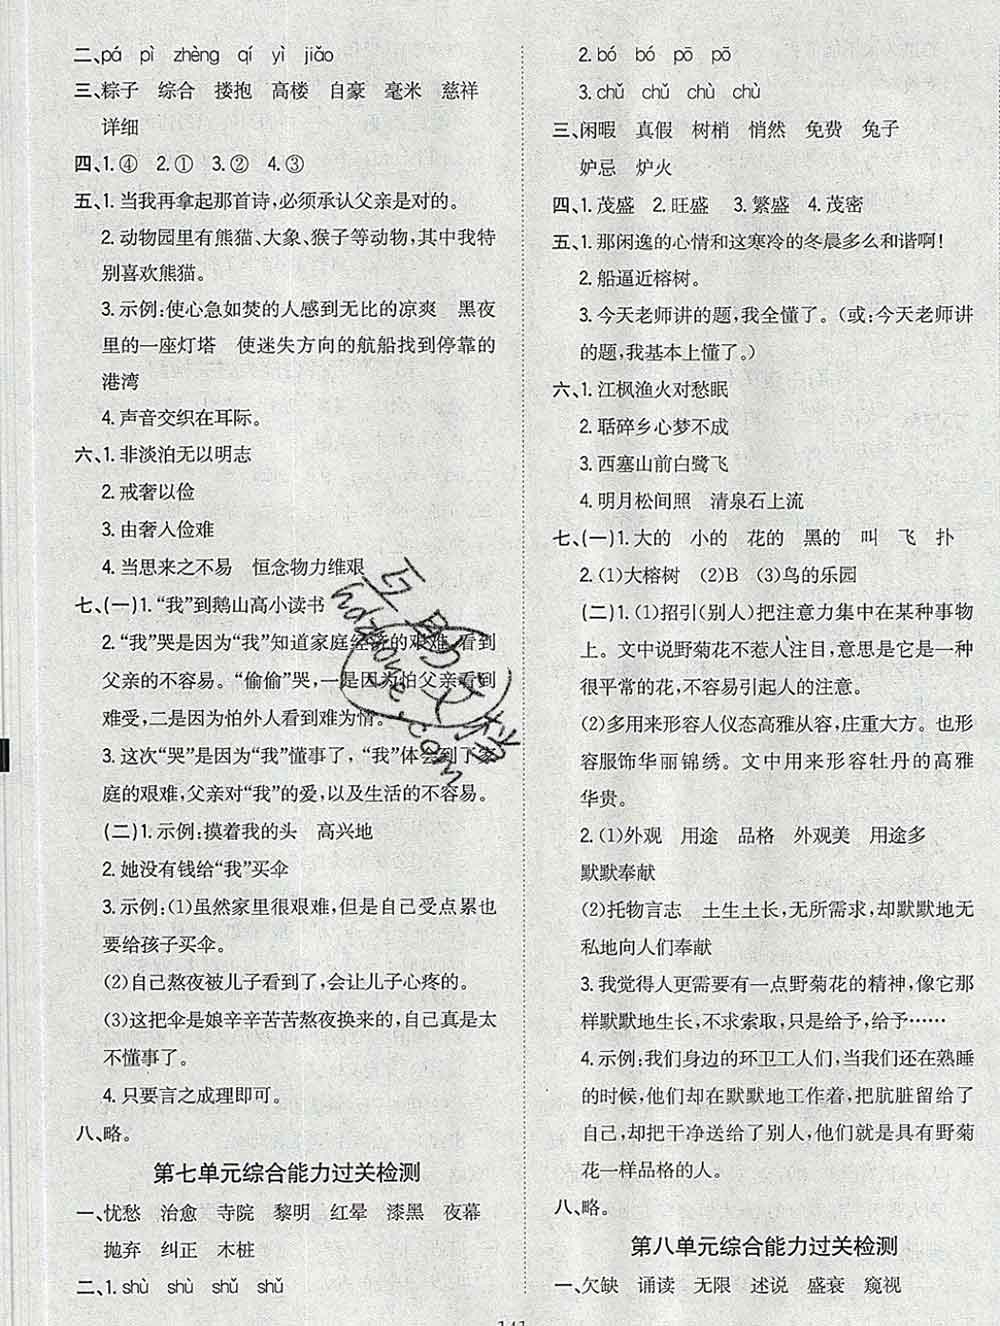 二、pá pì zhèng qí yì jiǎo
三、粽子 综合 搂抱 高楼 自豪 毫米 慈祥
详细
四、1.④ 2.① 3.② 4.③
五、1.当我再拿起那首诗,必须承认父亲是对的。
2.动物园里有熊猫、大象、猴子等动物,其中我特
别喜欢熊猫。
3.示例:使心急如焚的人感到无比的凉爽 黑夜
里的一座灯塔 使迷失方向的航船找到停靠的
港湾
4.声音交织在耳际。
六、1.非淡泊无以明志
2.戒奢以俭
3.由奢人俭难
4.当思来之不易 恒念物力维艰
七、(一)1.“我”到鹅山高小读书
2.“我”哭是因为“我”知道家庭经济的艰难,看到
父亲的不容易。“偷偷”哭,一是因为怕父亲看到
难受,二是因为怕外人看到难为情。
3.这次“哭”是因为“我”懂事了,“我”体会到了家
庭的艰难,父亲对“我”的爱,以及生活的不容易。
(二)1.示例:摸着我的头 高兴地
2.她没有钱给“我”买伞
3.示例:(1)虽然家里很艰难,但是自己受点累也
要给孩子买伞。
(2)自己熬夜被儿子看到了,会让儿子心疼的。
(3)这把伞是娘辛辛苦苦熬夜换来的,自己真是太
不懂事了。
4.只要言之成理即可。
八、略。
第七单元综合能力过关检测
一、忧愁 治愈 寺院 黎明 红晕 漆黑 夜幕
抛弃 纠正 木桩
二、1.shù shù shǔ shǔ
2.bó bó pō pō
3.chǔ chǔ chù chù
三、闲暇 真假 树梢 悄然 免费 兔子
妒忌 炉火
四、1.茂盛 2.旺盛 3.繁盛 4.茂密
五、1.那闲逸的心情和这寒冷的冬晨多么和谐啊!
2.船逼近榕树。
3.今天老师讲的题,我全懂了。(或:今天老师讲
的题,我基本上懂了。)
六、1.江枫渔火对愁眠
2.聒碎乡心梦不成
3.西塞山前白鹭飞
4.明月松间照 清泉石上流
七、(一)1.大的 小的 花的 黑的 叫 飞 扑
2.(1)大榕树 (2)B (3)鸟的乐园
(二)1.(1)招引(别人)把注意力集中在某种事物
上。文中说野菊花不惹人注目,意思是它是一种
很平常的花,不容易引起人的注意。
(2)多用来形容人仪态高雅从容,庄重大方。也形
容服饰华丽锦绣。文中用来形容牡丹的高雅
华贵。
2.(1)外观 用途 品格 外观美 用途多
默默奉献
(2)托物言志 土生土长,无所需求,却默默地无
私地向人们奉献
3.我觉得人更需要有一点野菊花的精神,像它那
样默默地生长,不求索取,只是给予,给予……
4.示例:我们身边的环卫工人们,当我们还在熟睡
的时候,他们就已经在默默地工作着,把肮脏留给了
自己,却把干净送给了别人,他们就是具有野菊
花一样品格的人。
八、略。
第八单元综合能力过关检测
一、欠缺 诵读 无限 述说 盛衰 窥视
141